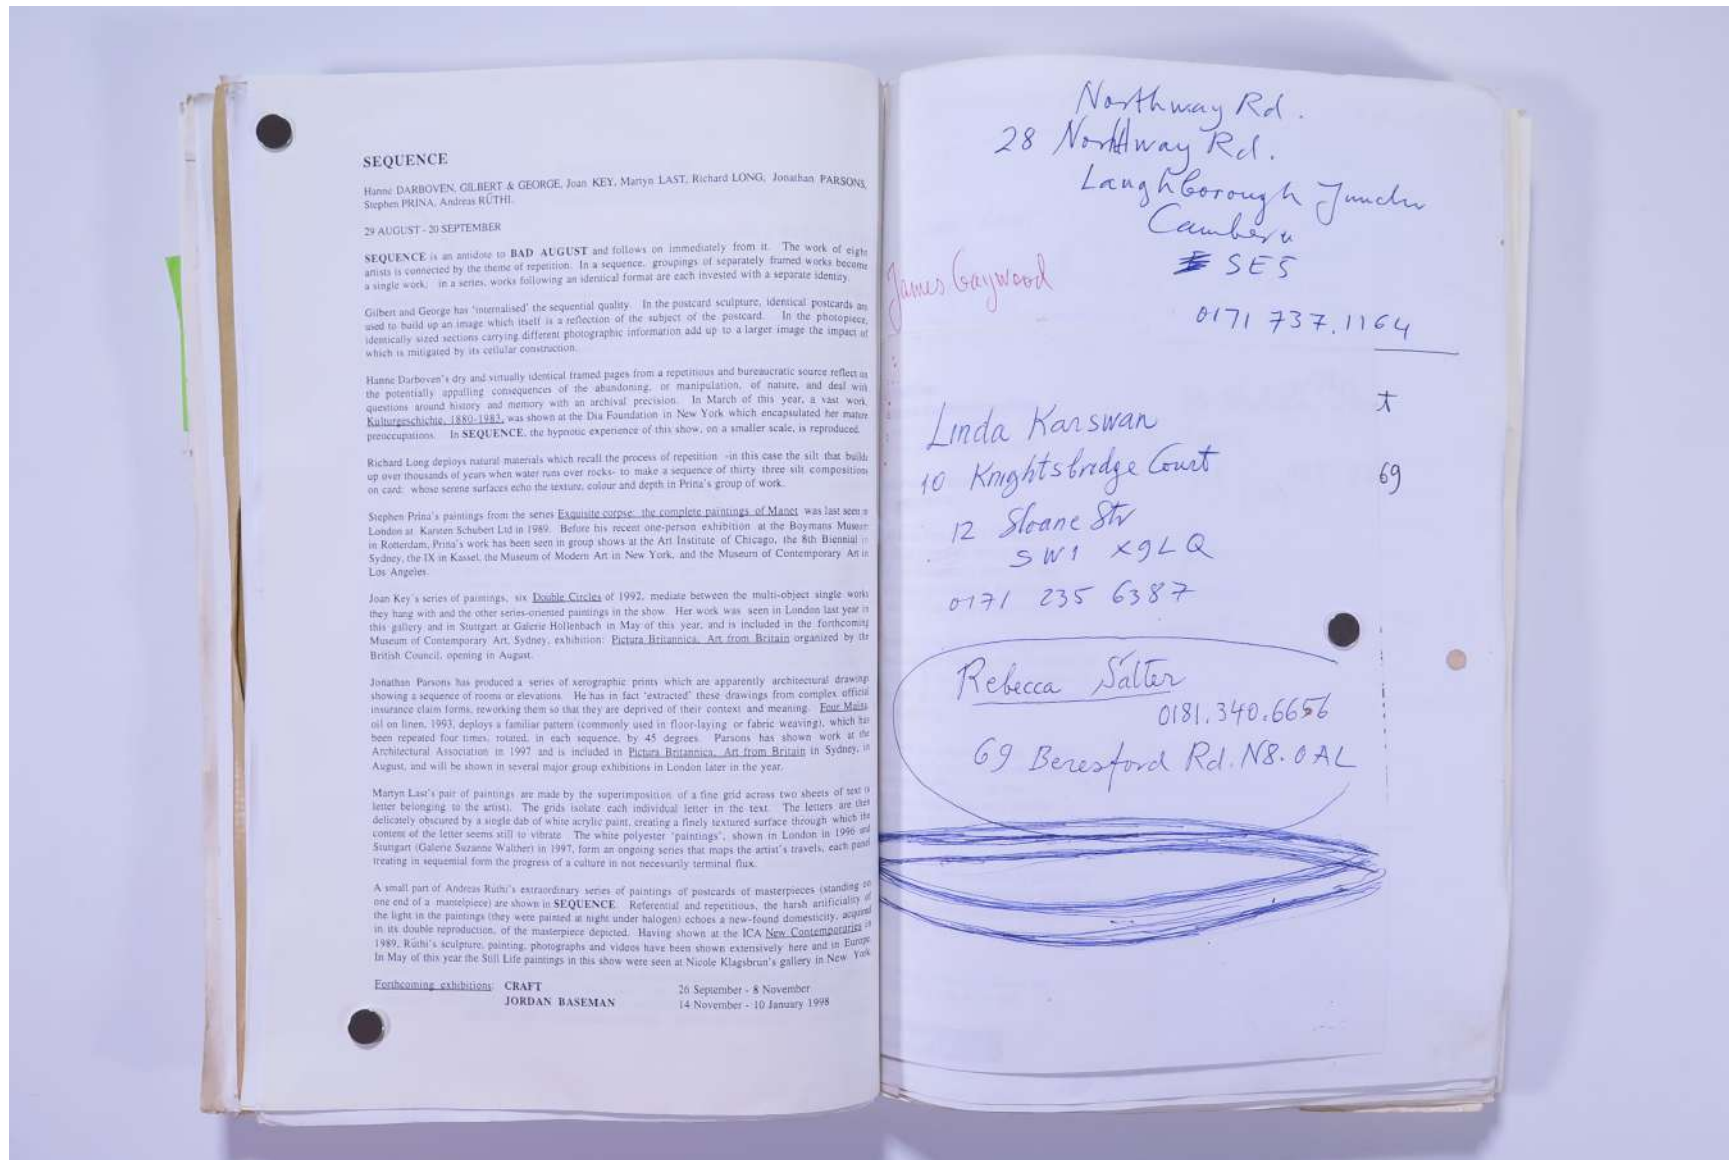 SEQUENCE
Hanne DARBOVEN, GILBERT & GEORGE, Joan KEY, Martyn LAST, Richard LONG, Jonathan PARSONS,
Stephen PRINA, Andreas RÜTHI.
29 AUGUST - 20 SEPTEMBER
SEQUENCE is an antidote to BAD AUGUST and follows on immediately from it. The work of eight
artists is connected by the theme of repetition. In a sequence, groupings of separately framed works become
a single work; in a series, works following an identical format are each invested with a separate identity.
Gilbert and George has 'internalised' the sequential quality. In the postcard sculpture, identical postcards are
used to build up an image which itself is a reflection of the subject of the postcard. In the photopiece,
identically sized sections carrying different photographic information add up to a larger image the impact of
which is mitigated by its cellular construction.
Hanne Darboven's dry and virtually identical framed pages from a repetitious and bureaucratic source reflect on
the potentially appalling consequences of the abandoning, or manipulation, of nature, and deal with
questions around history and memory with an archival precision. In March of this year, a vast work,
Kulturgeschichte, 1880-1983, was shown at the Dia Foundation in New York which encapsulated her mature
preoccupations. In SEQUENCE, the hypnotic experience of this show, on a smaller scale, is reproduced.
Richard Long deploys natural materials which recall the process of repetition -in this case the silt that builds
up over thousands of years when water runs over rocks- to make a sequence of thirty three silt compositions
on card: whose serene surfaces echo the texture, colour and depth in Prina's group of work.
Stephen Prina's paintings from the series Exquisite corpse: the complete paintings of Manet was last seen in
London at Karsten Schubert Ltd in 1989. Before his recent one-person exhibition at the Boymans Museum
in Rotterdam, Prina's work has been seen in group shows at the Art Institute of Chicago, the 8th Biennial in
Sydney, the IX in Kassel, the Museum of Modern Art in New York, and the Museum of Contemporary Art in
Los Angeles.
Joan Key's series of paintings, six Double Circles of 1992, mediate between the multi-object single works
they hang with and the other series-oriented paintings in the show. Her work was seen in London last year in
this gallery and in Stuttgart at Galerie Hollenbach in May of this year, and is included in the forthcoming
Museum of Contemporary Art, Sydney, exhibition: Pictura Britannica, Art from Britain organized by the
British Council, opening in August.
Jonathan Parsons has produced a series of xerographic prints which are apparently architectural drawings
showing a sequence of rooms or elevations. He has in fact 'extracted' these drawings from complex official
insurance claim forms, reworking them so that they are deprived of their context and meaning. Four Mains,
oil on linen, 1993, deploys a familiar pattern (commonly used in floor-laying or fabric weaving), which has
been repeated four times, rotated, in each sequence, by 45 degrees. Parsons has shown work at the
Architectural Association in 1997 and is included in Pictura Britannica, Art from Britain in Sydney, in
August, and will be shown in several major group exhibitions in London later in the year.
Martyn Last's pair of paintings are made by the superimposition of a fine grid across two sheets of text (a
letter belonging to the artist). The grids isolate each individual letter in the text. The letters are then
delicately obscured by a single dab of white acrylic paint, creating a finely textured surface through which the
content of the letter seems still to vibrate. The white polyester 'paintings', shown in London in 1996 and
Stuttgart (Galerie Suzanne Walther) in 1997, form an ongoing series that maps the artist's travels, each panel
treating in sequential form the progress of a culture in not necessarily terminal flux.
A small part of Andreas Rüthi's extraordinary series of paintings of postcards of masterpieces (standing on
one end of a mantelpiece) are shown in SEQUENCE. Referential and repetitious, the harsh artificiality of
the light in the paintings (they were painted at night under halogen) echoes a new-found domesticity, acquired
in its double reproduction, of the masterpiece depicted. Having shown at the ICA New Contemporaries in
1989, Rüthi's sculpture, painting, photographs and videos have been shown extensively here and in Europe.
In May of this year the Still Life paintings in this show were seen at Nicole Klagsbrun's gallery in New York.
Forthcoming exhibitions: CRAFT 26 September - 8 November
JORDAN BASEMAN 14 November - 10 January 1998
Northway Rd.
28 Northway Rd.
Laughborough Junctn
Camberu
SE5
James Gaywood
0171 737.1164
t
Linda Karswan
10 Knightsbridge Court
69
12 Sloane Str
SW1 X9LQ
0171 235 6387
Rebecca Salter
0181.340.6656
69 Beresford Rd. N8.0AL